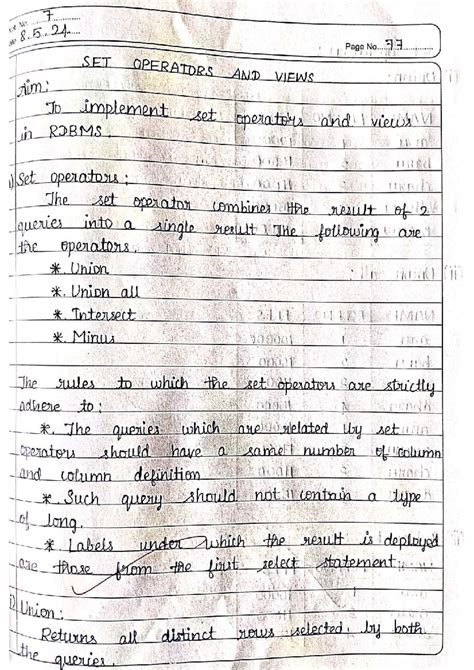 7
8.5.24
Page No. 77
SET OPERATORS AND VIEWS
Aim:
To implement set operators and views
in RDBMS.
Set operators:
The set operator combines the result of 2
queries into a single result The following are
the operators.
*. Union
*. Union all
*. Intersect
*. Minus
The rules to which the set operators are strictly
adhere to:
*. The queries which are related by set
operators should have a same number of column
and column definition
*. Such query should not contain a type
of long.
* Labels under which the result is deployed
are those from the first select statement
i) Union:
Returns all distinct rows selected by both
the queries.